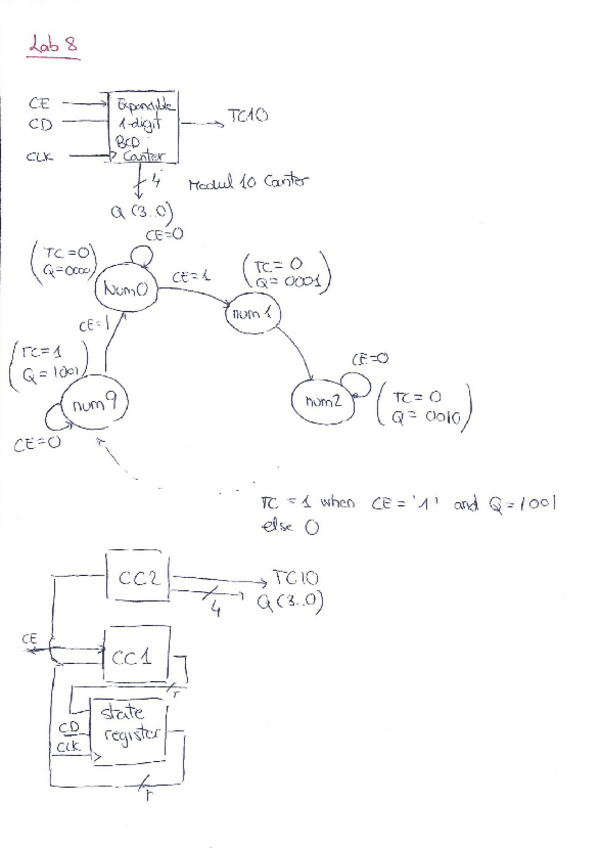 Lab 8
CE
CD
CLK
Expandable
1-digit
BCD
Canter
TC10
4
Modul 10 Canter
Q (3..0)
CE=0
(TC=0
Q=0000)
Num0
CE=1
(TC=0
Q=0001)
num1
CE=1
(TC=1
Q=1001)
num9
CE=0
CE=0
num2
(TC=0
Q=0010)
TC = 1 when CE = '1' and Q = 1001
else 0
CC2
TC10
4
Q(3..0)
CE
CC1
r
state
register
CD
CLK
r